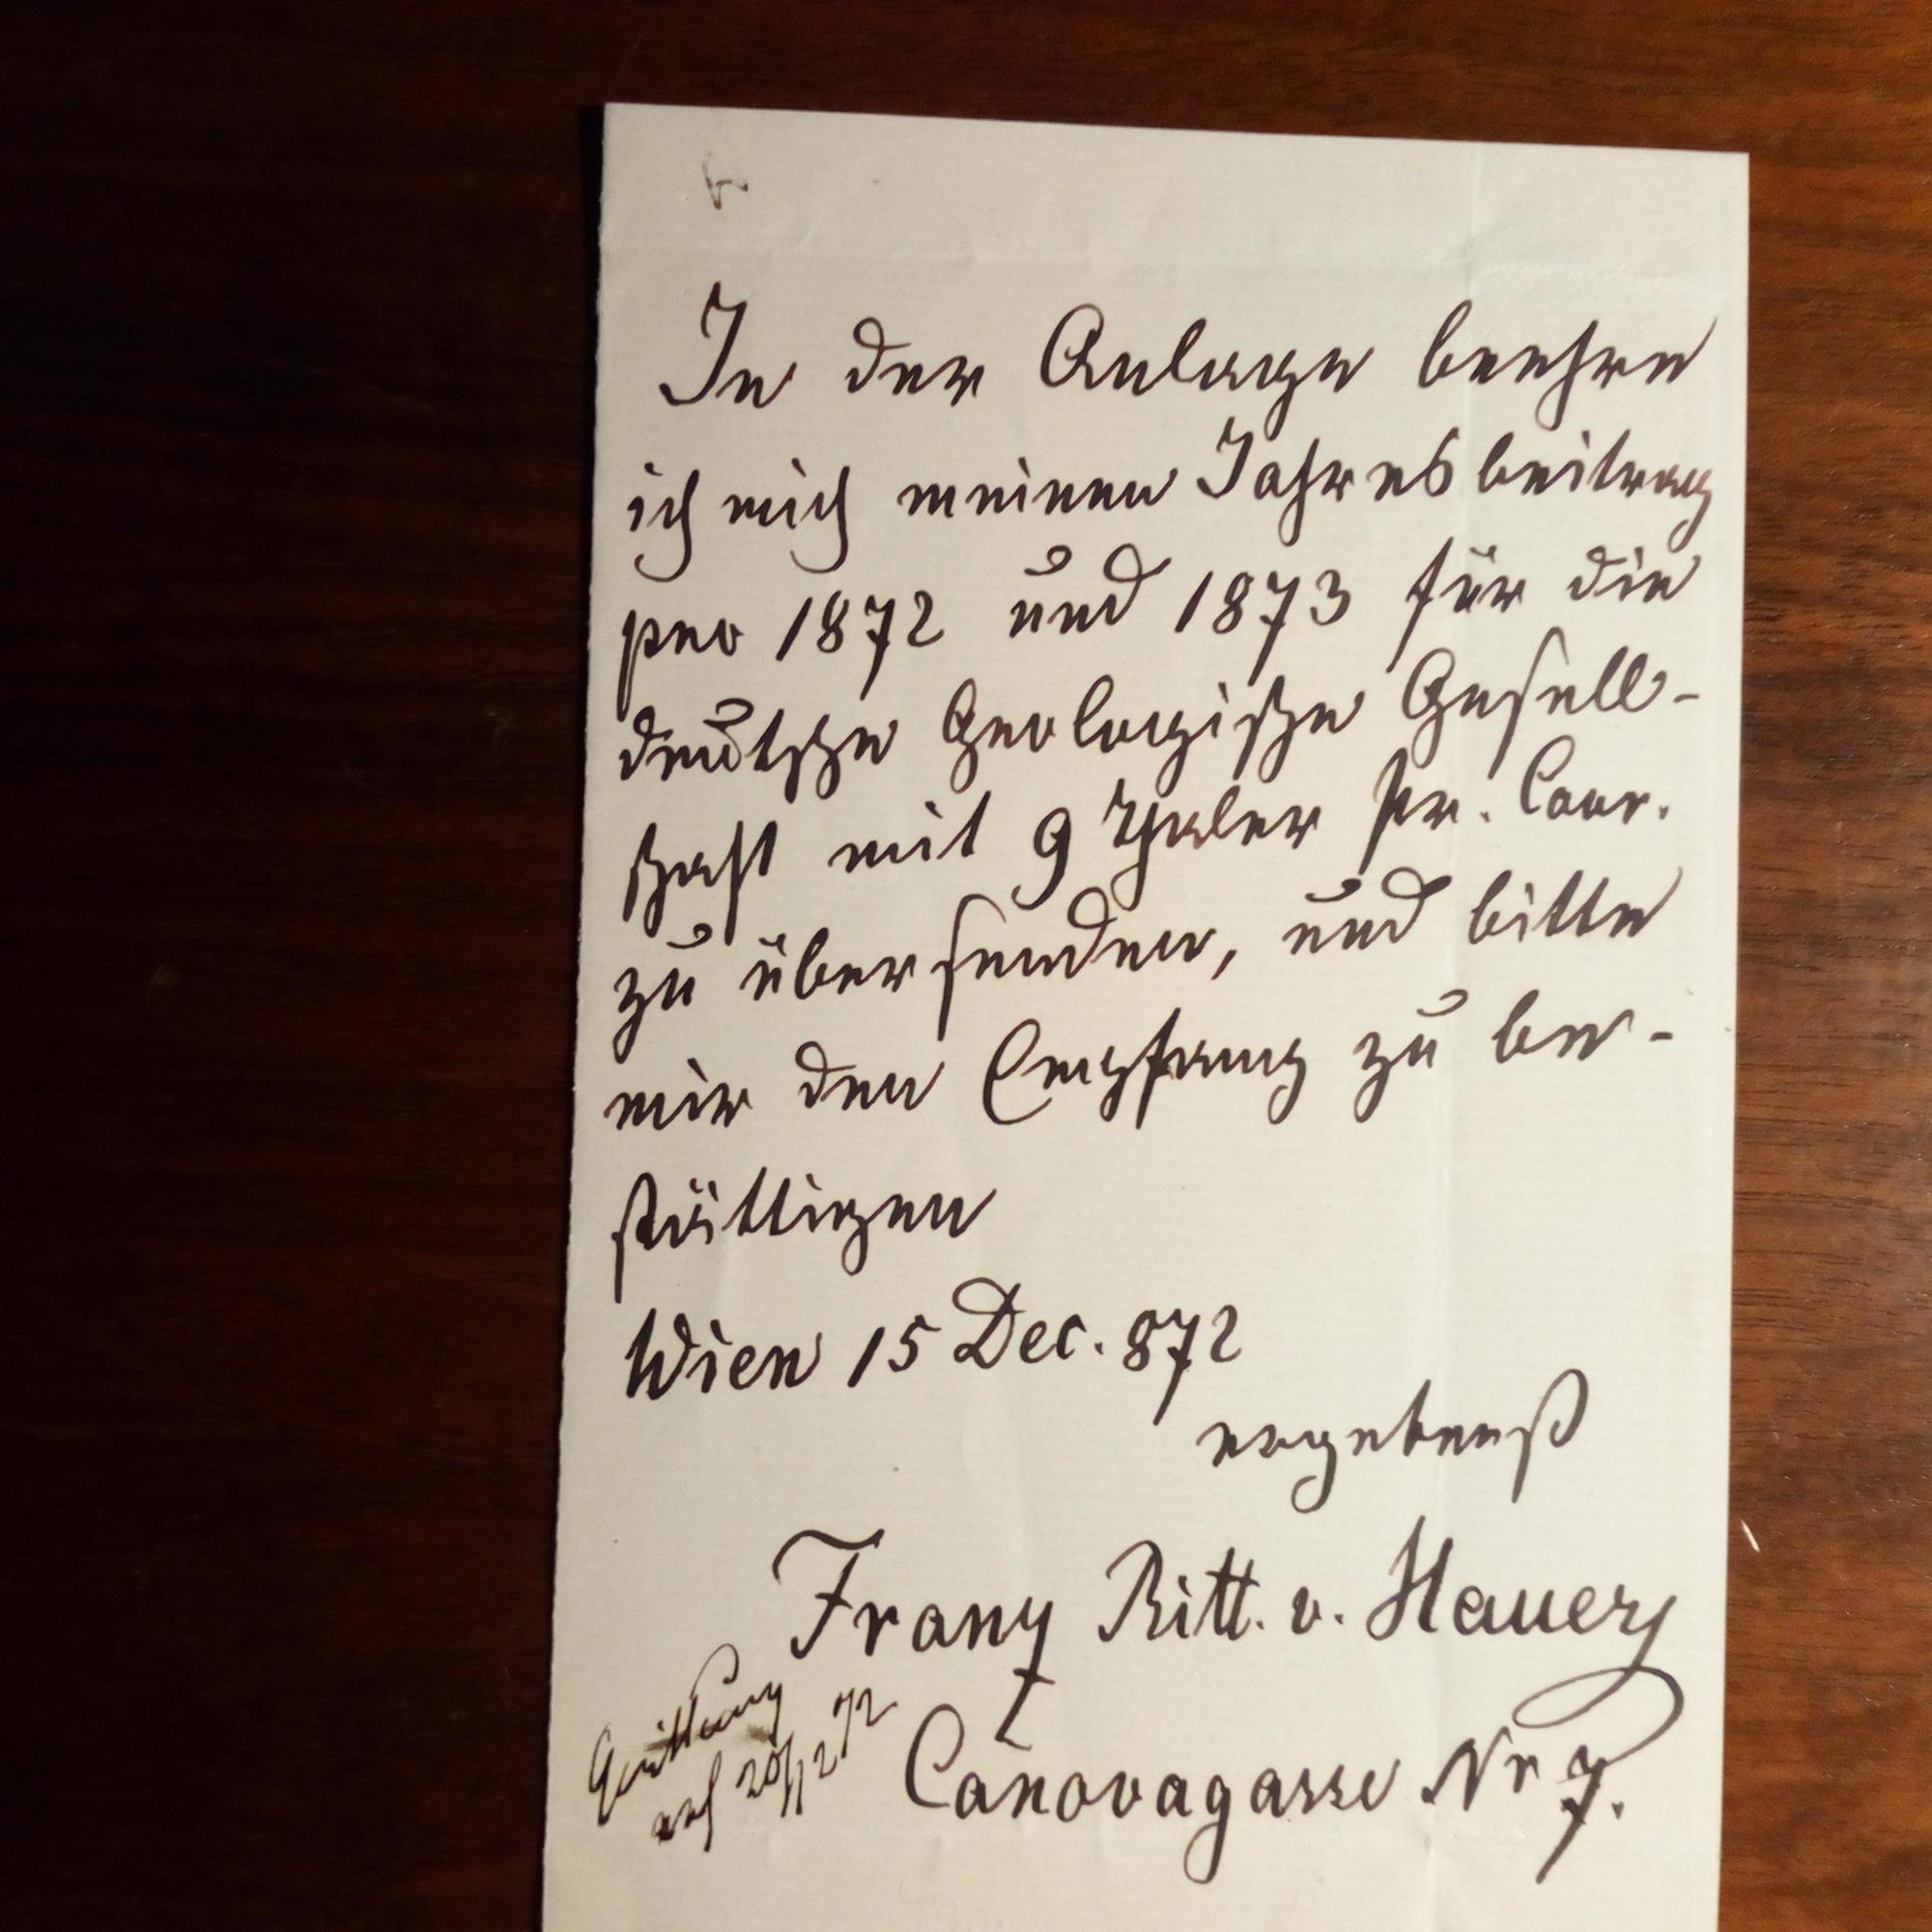 In der Anlage beehre
ich mich meinen Jahresbeitrag
pro 1872 und 1873 für die
deutsche Geologische Gesell-
schaft mit 9 Thaler pr. Cour.
zu übersenden, und bitte
mir den Empfang zu be-
stättigen
Wien 15 Dec. 872
ergebenst
Franz Ritt. v. Hauer
Canovagasse Nr 7.
Quittung
20/12 72